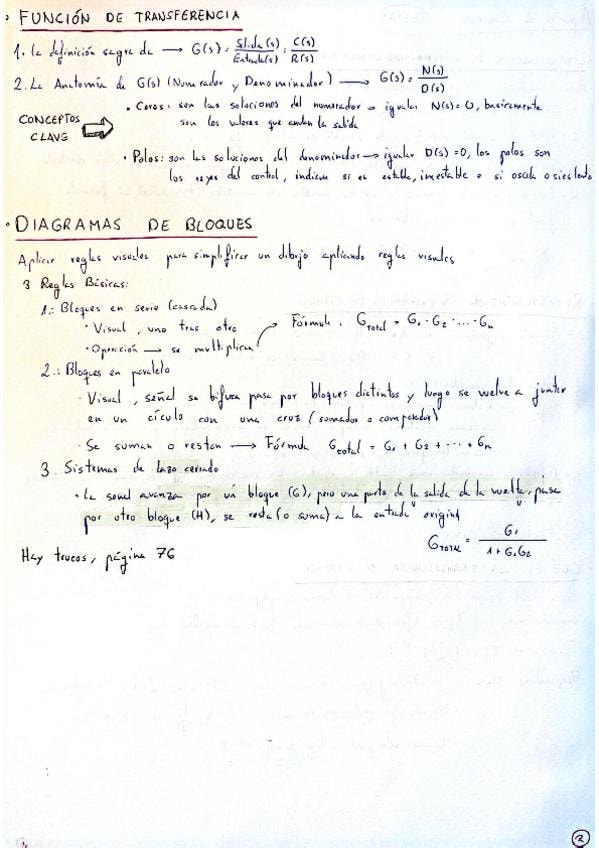 · FUNCIÓN DE TRANSFERENCIA
1. La definición sagrada → G(s) = Salida(s)/Entrada(s) = C(s)/R(s)
2. La Anatomía de G(s) (Numerador y Denominador) → G(s) = N(s)/D(s)
CONCEPTOS CLAVE ⇒
• Ceros: son las soluciones del numerador → igualar N(s)=0, basicamente
son los valores que anulan la salida
• Polos: son las soluciones del denominador → igualar D(s)=0, los polos son
los reyes del control, indican si es estable, inestable o si oscila o es lento
· DIAGRAMAS DE BLOQUES
Aplicar reglas visuales para simplificar un dibujo aplicando reglas visuales
3 Reglas Básicas:
1.: Bloques en serie (cascada)
• Visual, uno tras otro
• Operación → se multiplican → Fórmula. G_TOTAL = G₁·G₂·...·Gn
2.: Bloques en paralelo
• Visual, señal se bifurca pasa por bloques distintos y luego se vuelve a juntar
en un círculo con una cruz (sumador o comparador)
• Se suman o restan → Fórmula G_total = G₁ + G₂ + ... + Gn
3. Sistemas de lazo cerrado
• La señal avanza por un bloque (G), pero una parte de la salida da la vuelta, pasa
por otro bloque (H), se resta (o suma) a la entrada original
G_TOTAL = G₁/(1+G₁G₂)
Hay trucos, página 76
2